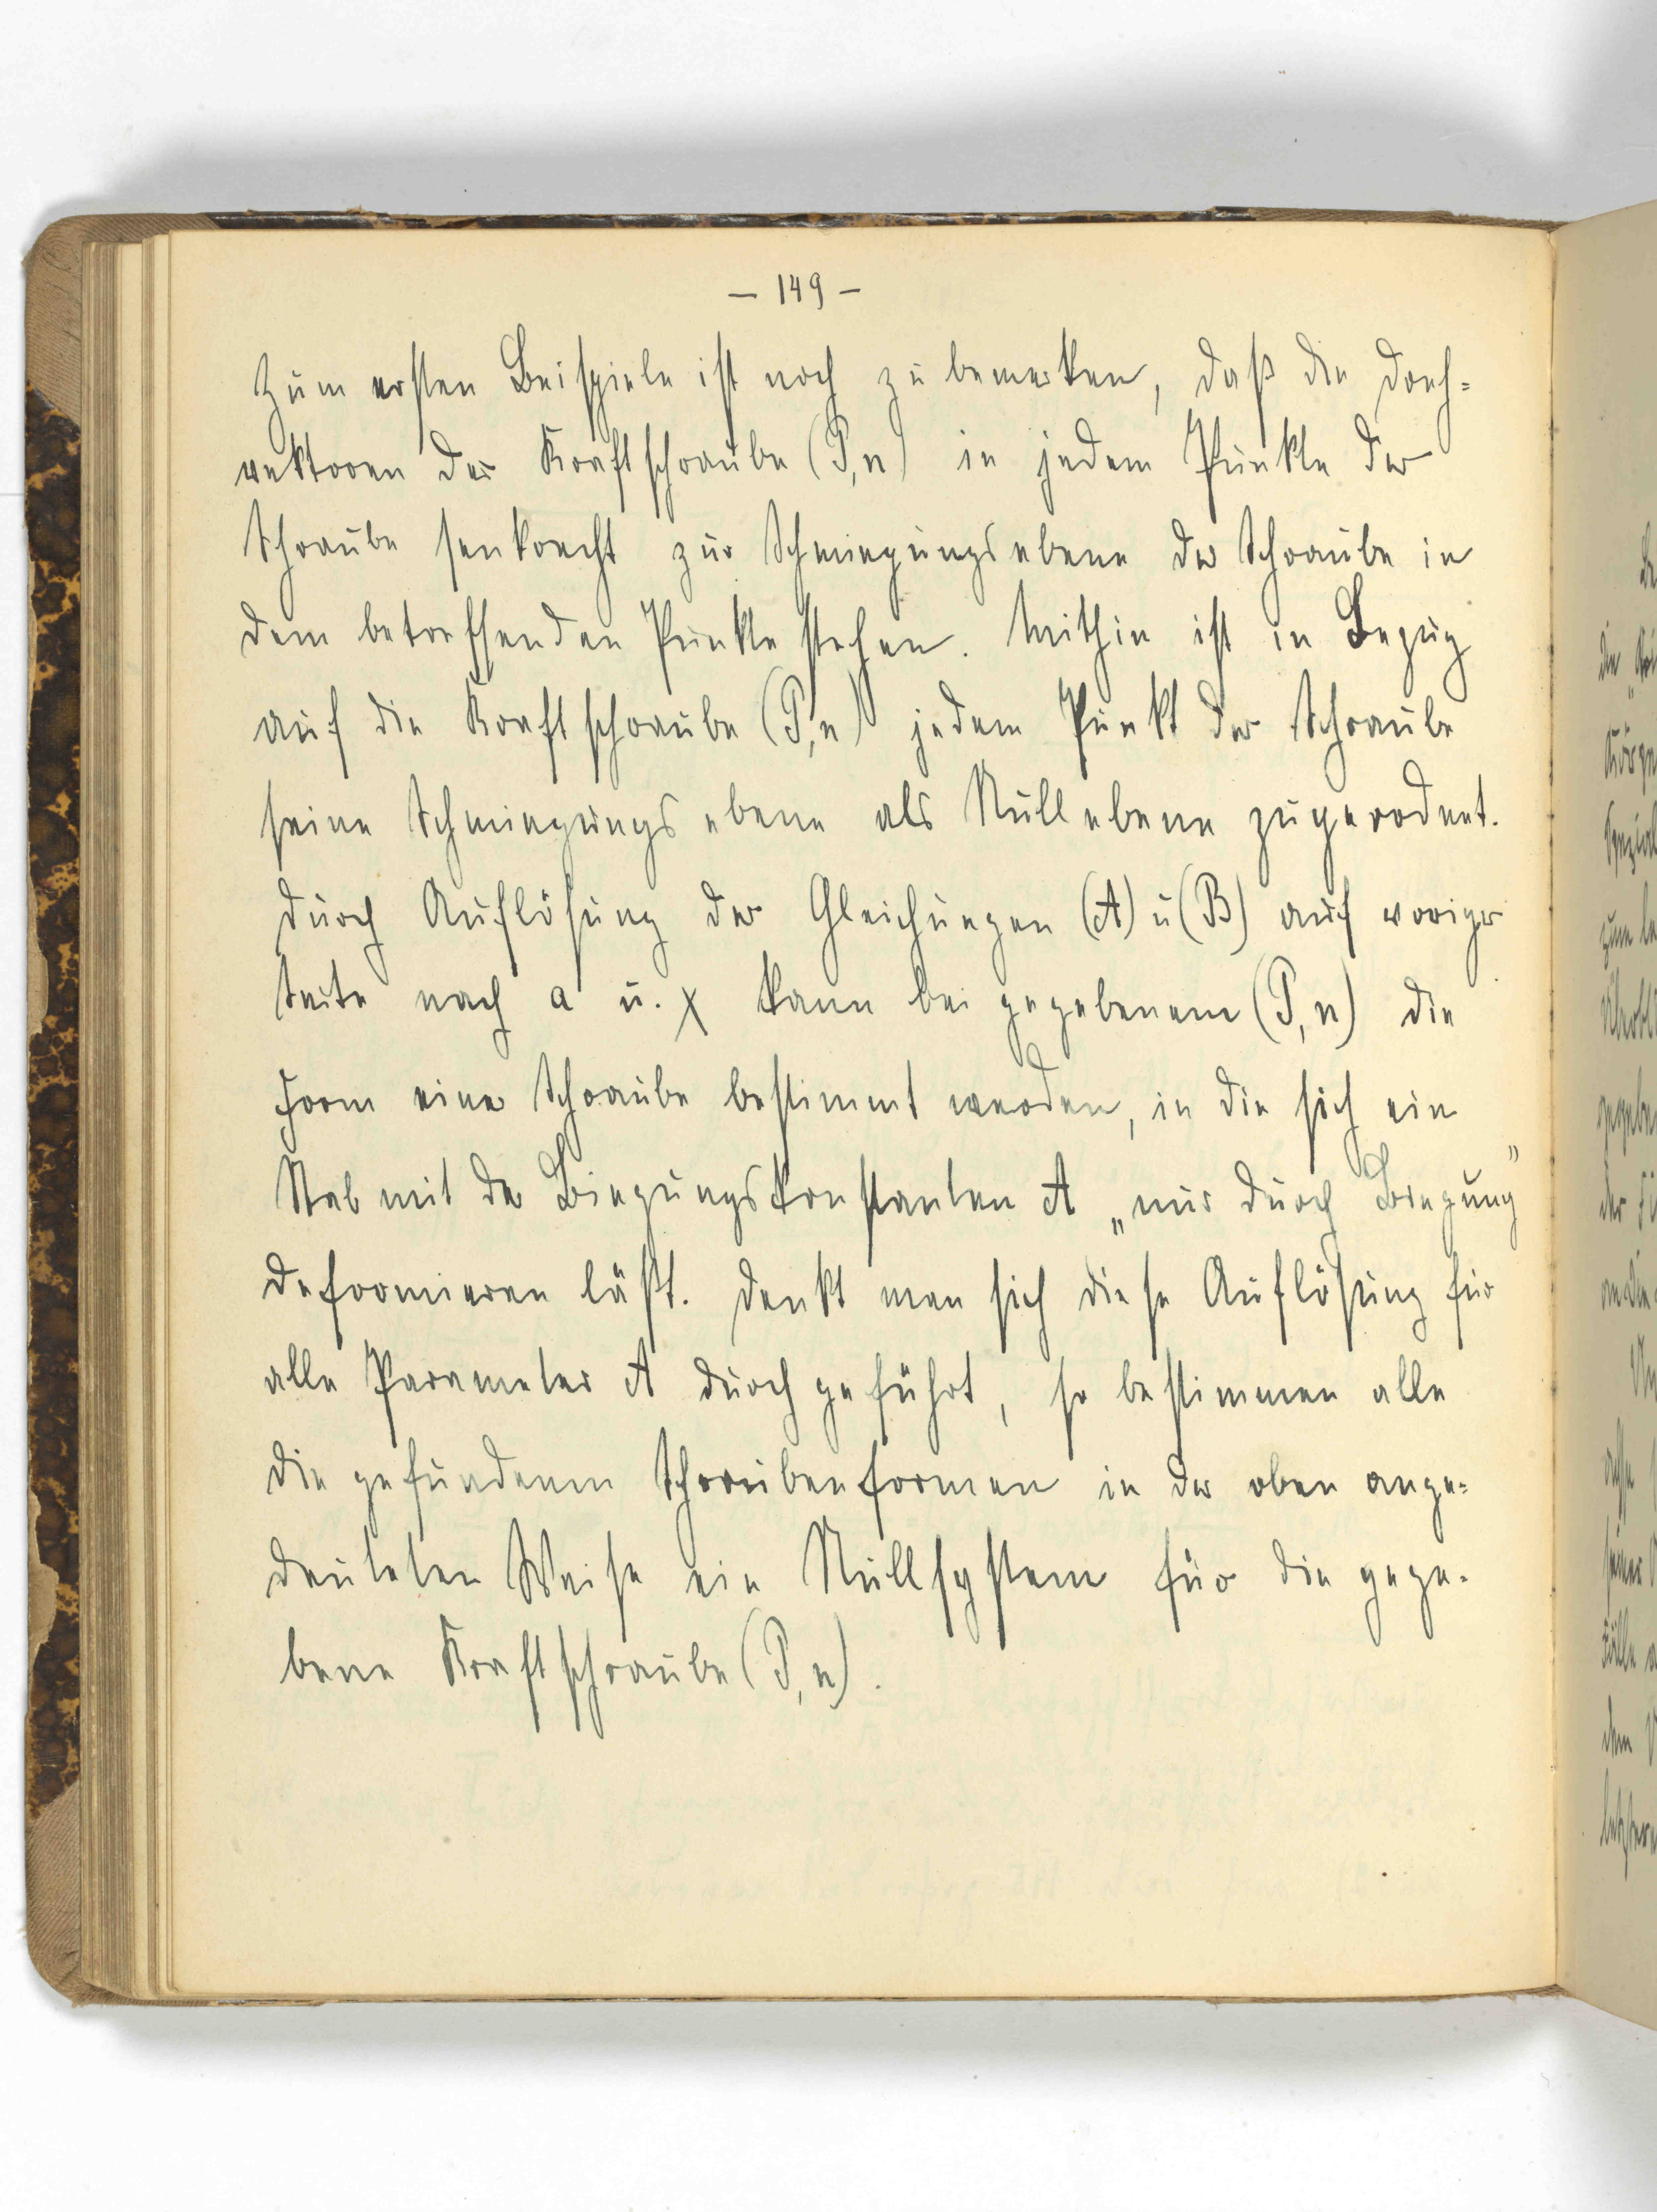 — 149 —
Zum ersten Beispiele ist noch zu bemerken, daß die Dreh-
vektoren der Kraftschraube (P,n) in jedem Punkte der
Schraube senkrecht zur Schmiegungsebene der Schraube in
dem betreffenden Punkte stehen. Mithin ist in Bezug
auf die Kraftschraube (P,n) jedem Punkt der Schraube
seine Schmiegungsebene als Nullebene zugeordnet.
Durch Auflösung der Gleichungen (A) u (B) auf voriger
Seite nach a u. χ kann bei gegebenem (P,n) die
Form einer Schraube bestimmt werden, in die sich ein
Stab mit der Biegungskonstanten A „nur durch Biegung”
deformieren läßt. Denkt man sich diese Auflösung für
alle Parameter A durchgeführt, so bestimmen alle
die gefundenen Schraubenformen in der oben ange-
deuteten Weise ein Nullsystem für die gege-
bene Kraftschraube (P,n).